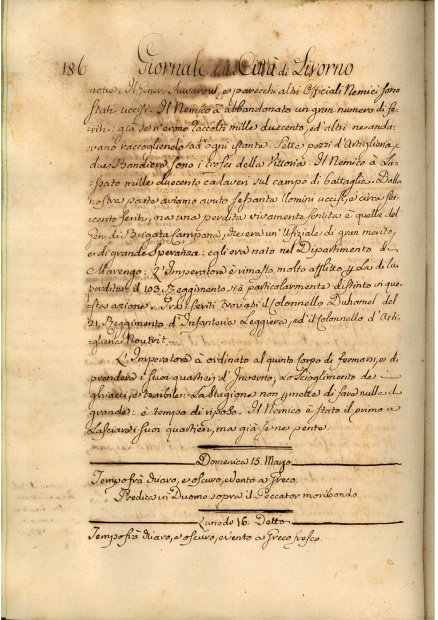 186 Giornale della Città di Livorno
notte. Il Gener. Suvarow, e parecchi altri Officiali Nemici sono
stati uccisi. Il Nemico à abbandonato un gran numero di fe-
riti: già se n'erono raccolti mille duecento, ed altri ne anda-
vano raccogliendo ad' ogni istante. Sette pezzi d'Artiglieria, e
due Bandiere sono i trofei della Vittoria. Il Nemico à la-
sciato mille duecento cadaveri sul campo di battaglia. Dalla
nostra parte aviamo avuto sessanta Uomini uccisi, e circa sei-
cento feriti, ma una perdita vivamente sentita è quella del
Gen. di Brigata Campana, che era un' Ufiziale di gran merito,
e di grande Speranza: egli era nato nel Dipartimento di
Marengo: L'Imperatore è rimasto molto afflitto p. la di lui
perdita. Il 103. Reggimento si è particolarmente distinto in que-
sta azione. Fra i feriti trovasi il Colonnello Duhamel del
21. Reggimento d'Infanteria Leggiera, ed il Colonnello d'Arti-
glieria Nourrit.
L'Imperatore à ordinato al quinto Corpo di fermarsi, e di
prendere i suoi quartieri d'Inverno. Lo scioglimento de
ghiacci, è terribile: La Stagione non pmette di fare nulla di
grande: è tempo di riposo. Il Nemico è stato il primo a
lasciare i suoi quartieri, ma già se ne pente.
Domenica 15. Marzo
Tempo frà Chiaro, e oscuro, e Vento a Greco.
Predica in Duomo sopra il Peccator moribondo.
Lunedì 16. Detto
Tempo frà Chiaro, e oscuro, e Vento a Greco fresco.